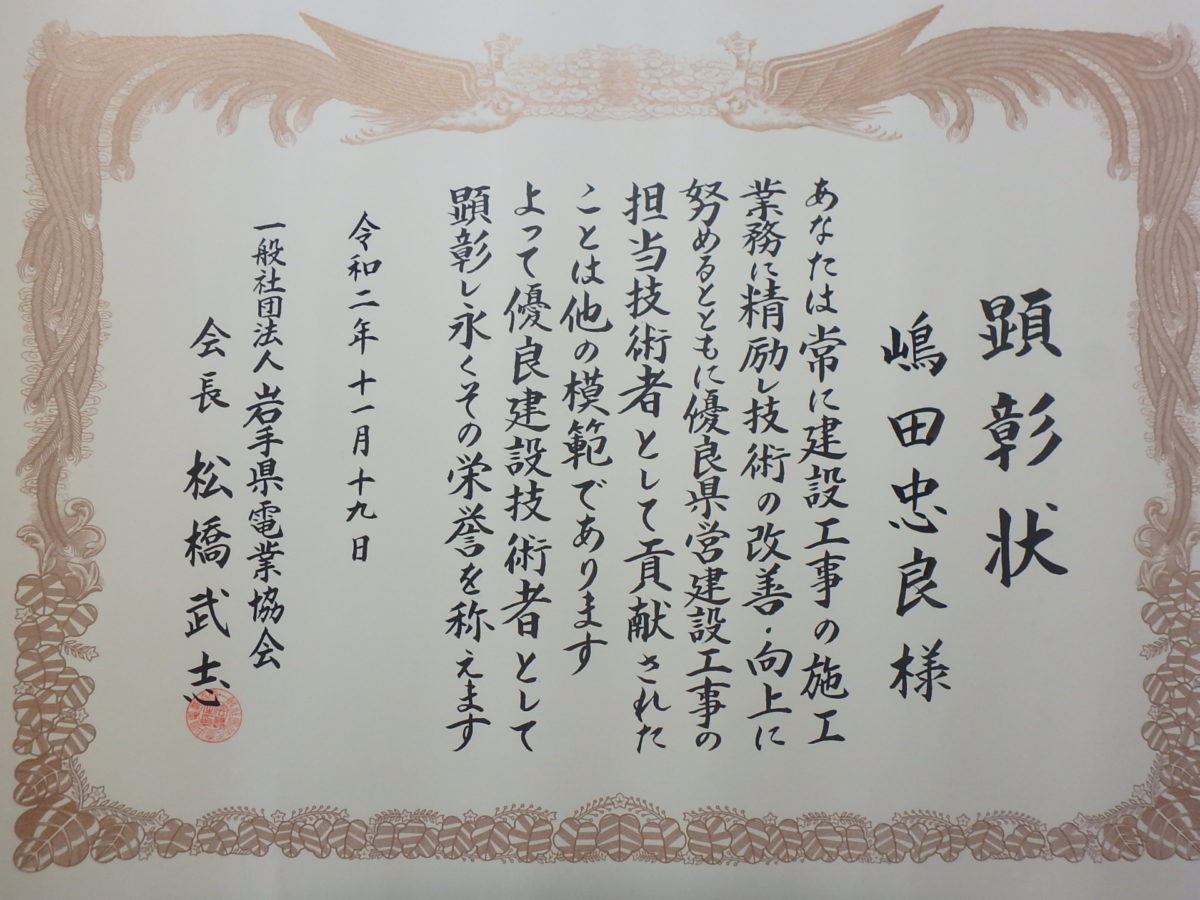 顕彰状
嶋田忠良様
あなたは常に建設工事の施工
業務に精励し技術の改善・向上に
努めるとともに優良県営建設工事の
担当技術者として貢献された
ことは他の模範であります
よって優良建設技術者として
顕彰し永くその栄誉を称えます
令和二年十一月十九日
一般社団法人岩手県電業協会
会長 松橋武志